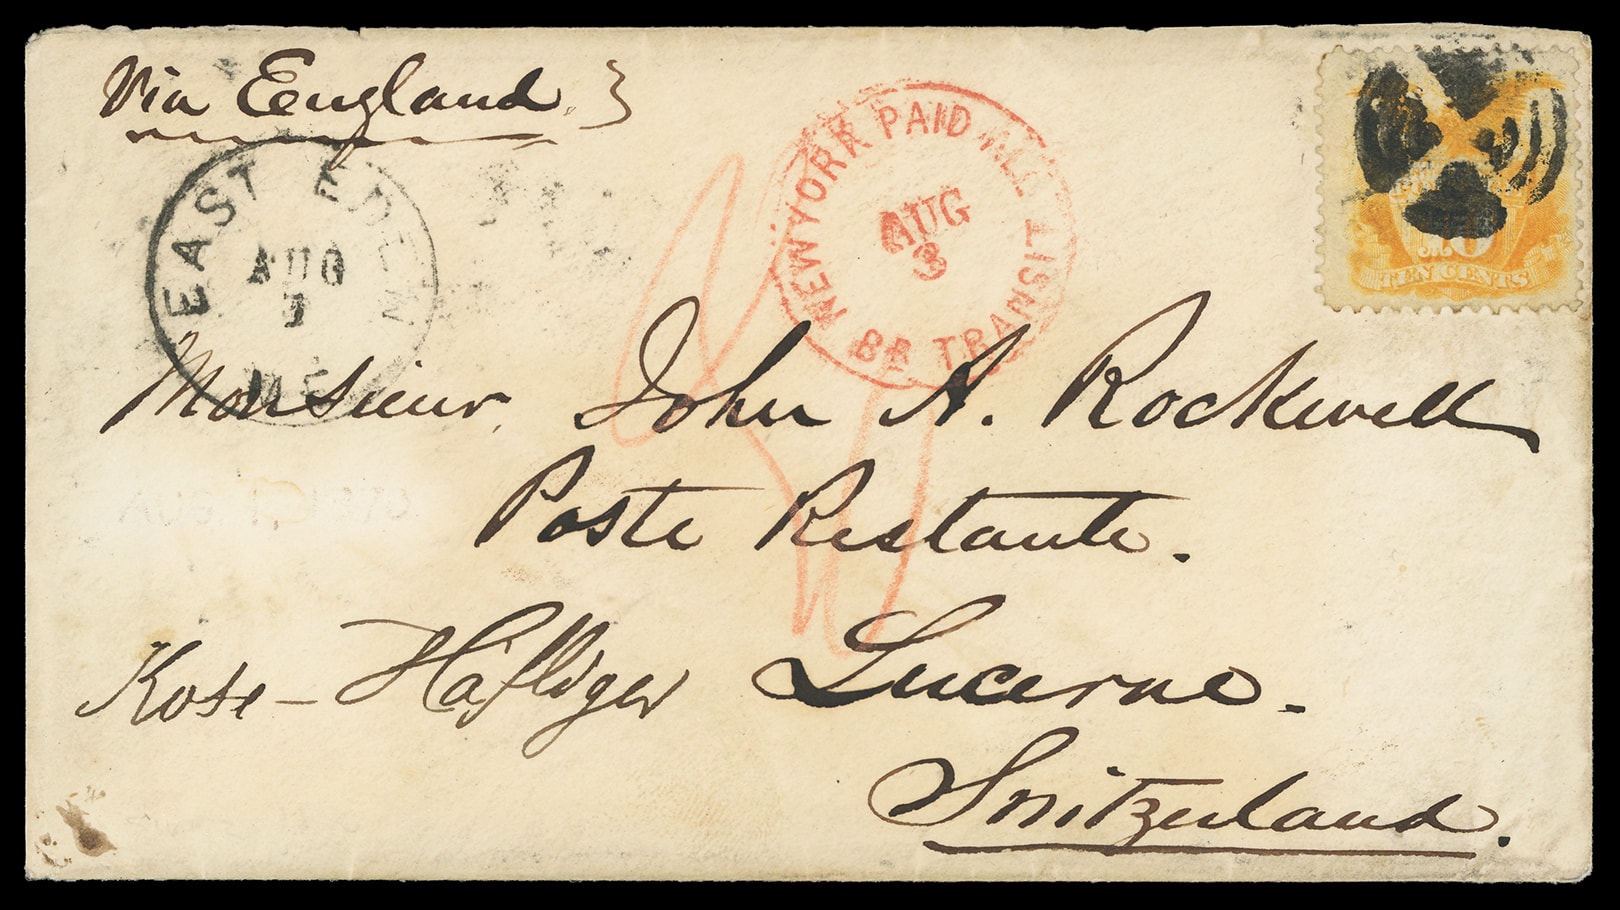 Via England.
EAST EDEN
AUG
ME
NEW YORK PAID ALL
BR. TRANSIT
AUG
3
10
TEN CENTS
Monsieur John A. Rockwell
Poste Restante.
Lucerne.
Switzerland.